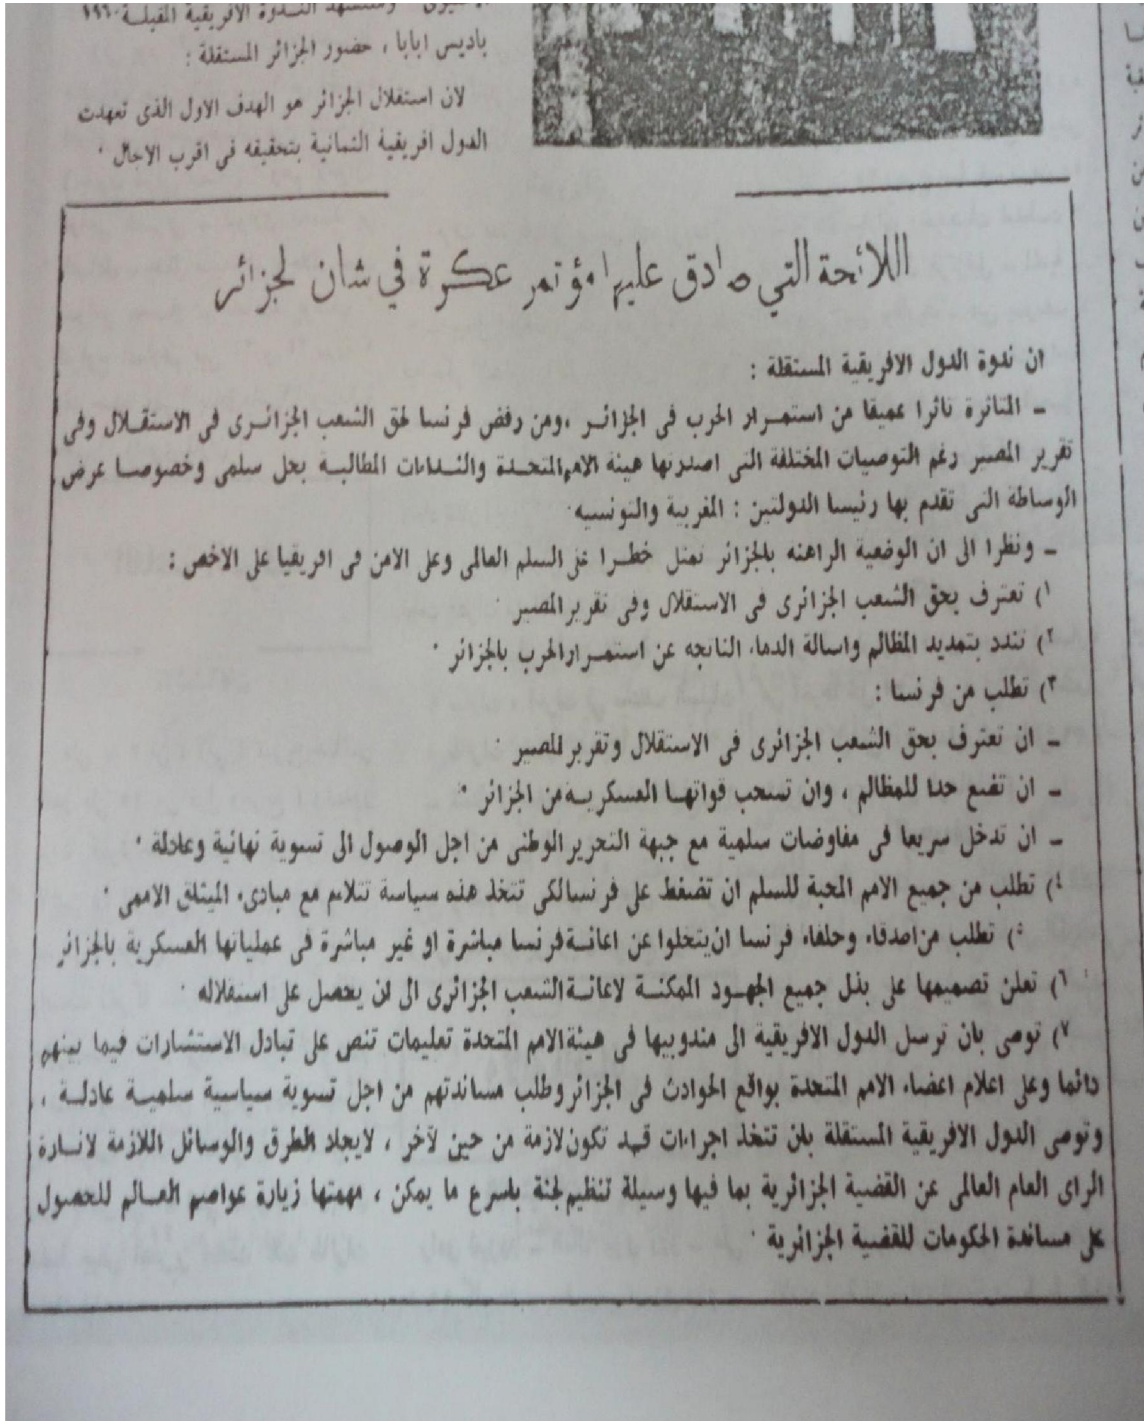 وستشهد الندوة الافريقية المقبلة ١٩٦٠
باديس ابابا ، حضور الجزائر المستقلة :
لان استقلال الجزائر هو الهدف الاول الذى تعهدت
الدول افريقية الثمانية بتحقيقه فى اقرب الاجال .
اللائحة التي صادق عليها مؤتمر عكرة في شان لجزائر
ان ندوة الدول الافريقية المستقلة :
ـ المتاثرة تاثرا عميقا من استمرار الحرب فى الجزائر ، ومن رفض فرنسا لحق الشعب الجزائرى فى الاستقلال وفى
تقرير المصير رغم التوصيات المختلفة التى اصدرتها هيئة الامم المتحدة والنداءات المطالبة بحل سلمى وخصوصا عرض
الوساطة التى تقدم بها رئيسا الدولتين : المغربية والتونسيه .
ـ ونظرا الى ان الوضعية الراهنه بالجزائر تمثل خطرا على السلم العالمى وعلى الامن فى افريقيا على الاخص :
١) تعترف بحق الشعب الجزائرى فى الاستقلال وفى تقرير المصير .
٢) تندد بتمديد المظالم واسالة الدماء الناتجه عن استمرار الحرب بالجزائر .
٣) تطلب من فرنسا :
ـ ان تعترف بحق الشعب الجزائرى فى الاستقلال وتقرير المصير .
ـ ان تضع حدا للمظالم ، وان تسحب قواتها العسكرية من الجزائر .
ـ ان تدخل سريعا فى مفاوضات سلمية مع جبهة التحرير الوطنى من اجل الوصول الى تسوية نهائية وعادلة .
٤) تطلب من جميع الامم المحبة للسلم ان تضغط على فرنسا لكى تتخذ هذه سياسة تتلاءم مع مبادىء الميثاق الاممى .
٥) تطلب من اصدقاء وحلفاء فرنسا ان يتخلوا عن اعانة فرنسا مباشرة او غير مباشرة فى عملياتها العسكرية بالجزائر
٦) تعلن تصميمها على بذل جميع الجهود الممكنة لاعانة الشعب الجزائرى الى ان يحصل على استقلاله .
٧) توصى بان ترسل الدول الافريقية الى مندوبيها فى هيئة الامم المتحدة تعليمات تنص على تبادل الاستشارات فيما بينهم
دائما وعلى اعلام اعضاء الامم المتحدة بواقع الحوادث فى الجزائر وطلب مساندتهم من اجل تسوية سياسية سلمية عادلة ،
وتوصى الدول الافريقية المستقلة بان تتخذ اجراءات قد تكون لازمة من حين لآخر ، لايجاد الطرق والوسائل اللازمة لانارة
الراى العام العالمى عن القضية الجزائرية بما فيها وسيلة تنظيم لجنة باسرع ما يمكن ، مهمتها زيارة عواصم العالم للحصول
على مساندة الحكومات للقضية الجزائرية .